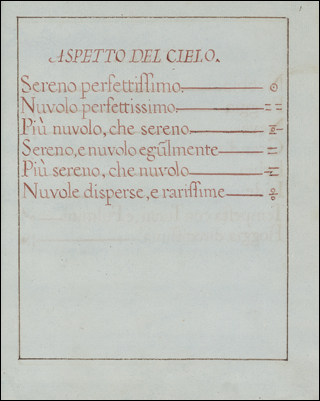 ASPETTO DEL CIELO.
Sereno perfettissimo.
Nuvolo perfettissimo.
Più nuvolo, che sereno.
Sereno, e nuvolo egũlmente
Più sereno, che nuvolo
Nuvole disperse, e rarissime